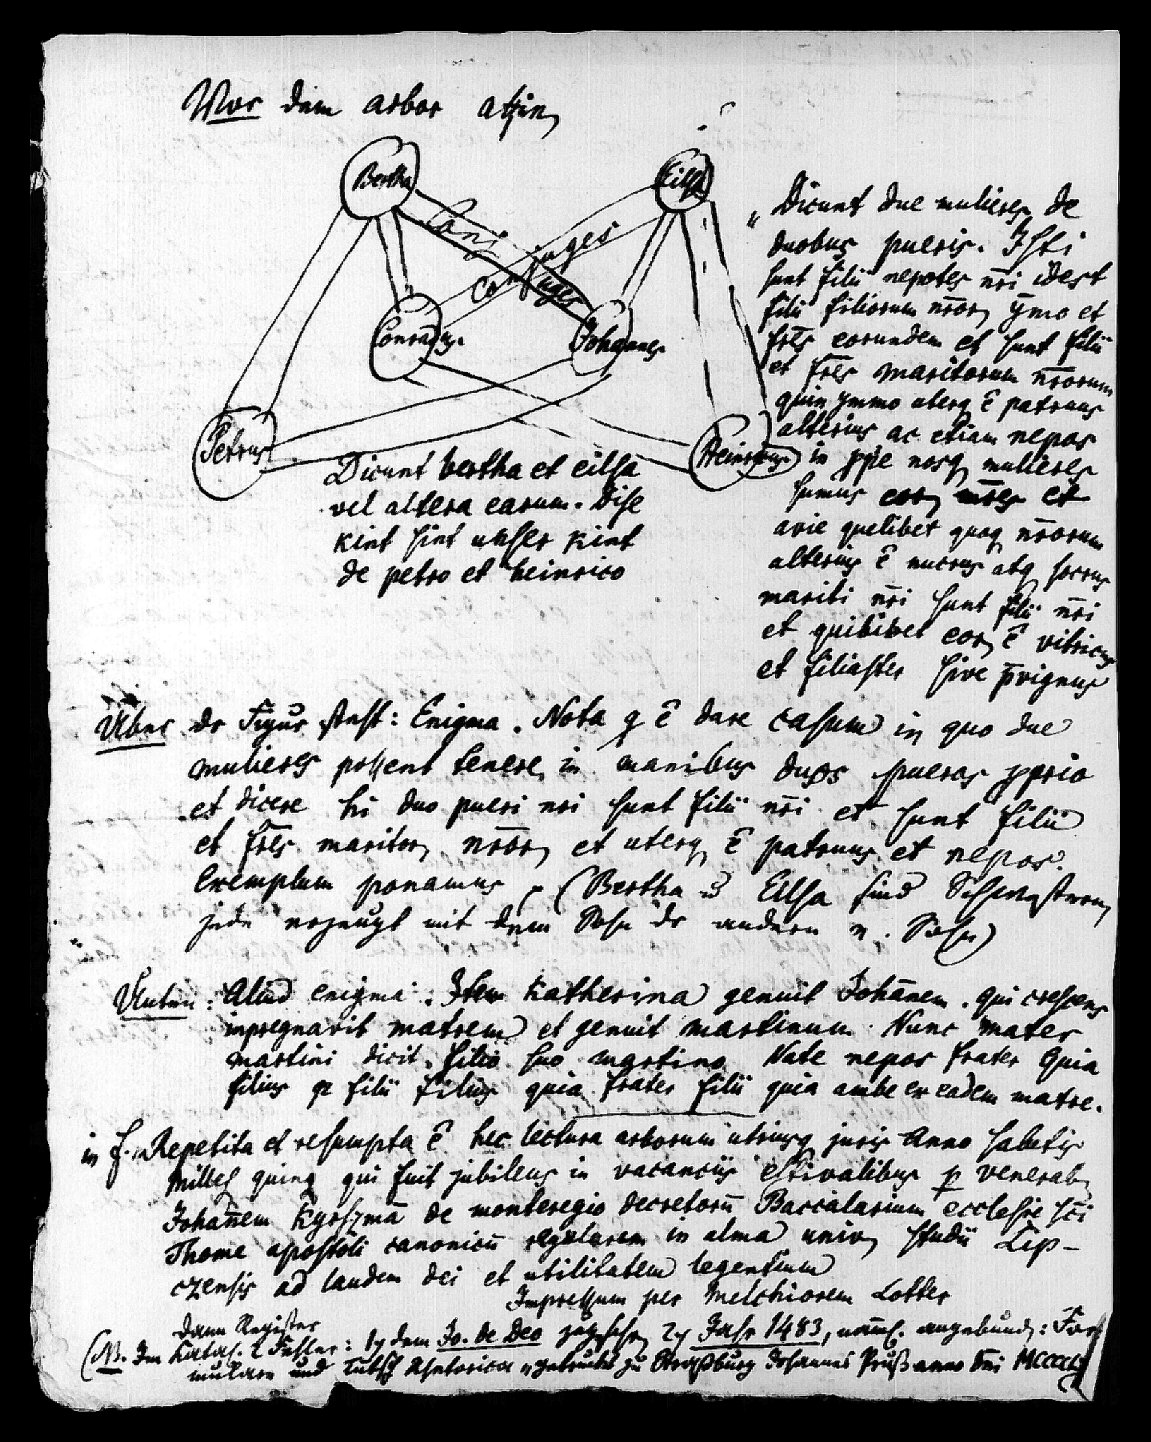 Vor dem arbor affin
Bertha
Eilsa
Conj
juges
Con
juges
Conradus
Johannes
Petrus
Heinricus
Dicunt bertha et eilsa
vel altera earum. Dise
kint sint unser kint
de petro et heinrico
„Dicunt due mulieres de
duobus pueris. Isti
sunt filii nepotes nr̄i idest
filii filiorum nr̄or, ymo et
fr̄es eorundem et sunt filii
et fr̄es maritorum nr̄orum
quin ymmo uterq ē patruus
alterius ac etiam nepos
in nosq mulieres
sumus eor, mr̄es et
avie quelibet quoq nr̄orum
alterius ē nurus atq socrus
mariti nr̄i sunt filii nr̄i
et quilibet eor, ē vitricus
et filiaster sive p̄vignus
Über der Figur steht: Enigma. Nota q ē dare casum in quo due
mulieres possent tenere in manibus duos pueros
et dicere hi duo pueri nr̄i sunt filii nr̄i et sunt filii
et fr̄es maritor, nr̄or, et uterq, ē patruus et nepos.
Exemplum ponamus, (Bertha u Eilsa sind Schwestern,
jede erzeugt mit dem Sohn der andern e. Sohn)
Unten: Aliud enigma: Item Katherina genuit Johānem. qui crescens
inpregnavit matrem et genuit martinum. Nunc mater
martini dicit filio suo martino Nate nepos frater Quia
filius filii filius quia frater filii quia ambe ex eadem matre.
in f. „Repetita et resumpta ē hec lectura arborum utriusq juris Anno salutis
Milles quing qui fuit jubileus in vacanciis estivalibus p venerab
Johan̄em Kyrszmā de monteregio decretorū Baccalarium ecclesie sc̄i
Thome apostoli canonicū regularem in alma univ, studii Lip-
czensis ad laudem dei et utilitatem legentium
Impressum per Melchiorem Lotter
Dann Register
(NB. Im Katal. 2 Fehler: by dem Jo. de Deo Jahr 1483, angebund: For
mulare und Rhetorica „gedruckt zu Straßburg Johannes Prüß anno